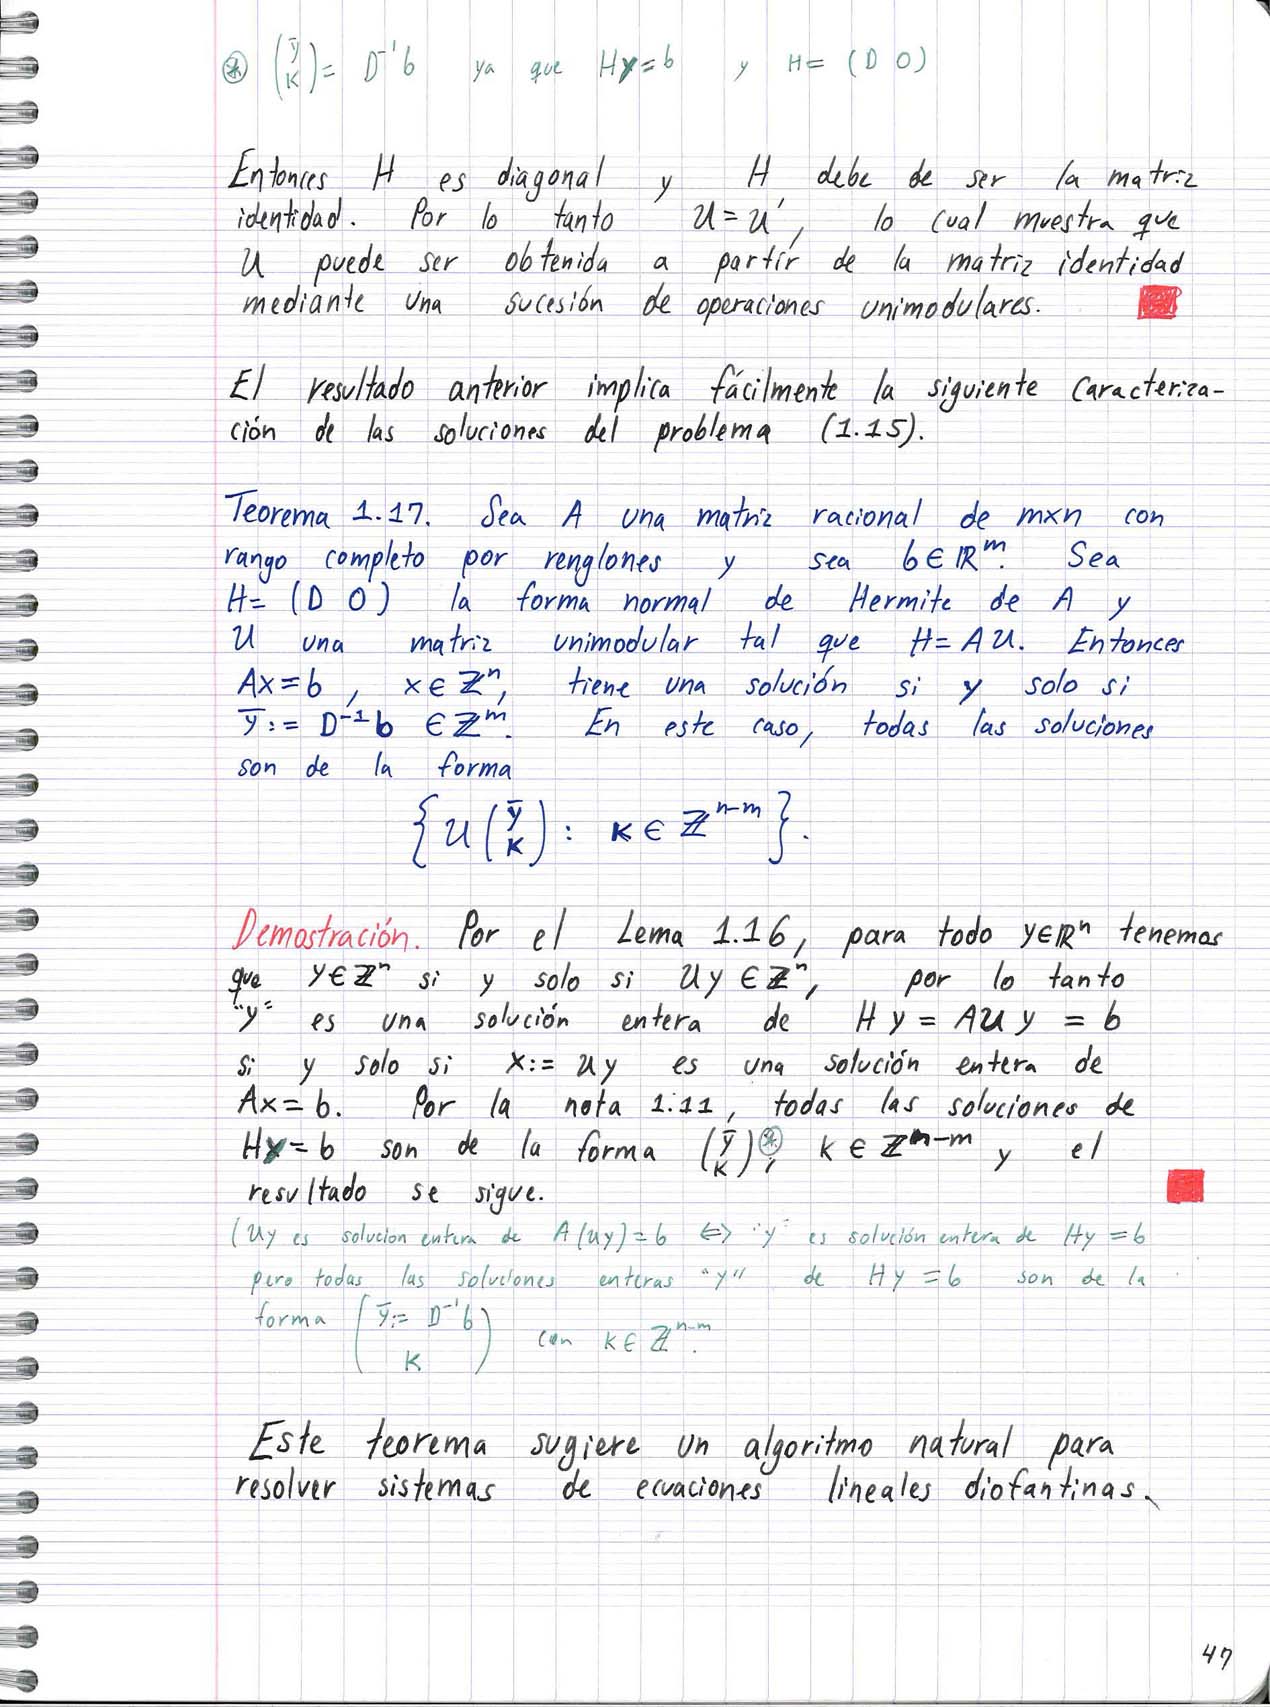 ⊛ (ȳ K) = D⁻¹b ya que Hy=b y H= (D 0)
Entonces H es diagonal y H debe de ser la matriz
identidad. Por lo tanto U=U', lo cual muestra que
U puede ser obtenida a partir de la matriz identidad
mediante una sucesión de operaciones unimodulares.
El resultado anterior implica fácilmente la siguiente caracteriza-
ción de las soluciones del problema (1.15).
Teorema 1.17. Sea A una matriz racional de mxn con
rango completo por renglones y sea b∈ℝᵐ. Sea
H= (D 0) la forma normal de Hermite de A y
U una matriz unimodular tal que H=AU. Entonces
Ax=b, x∈ℤⁿ, tiene una solución si y solo si
ȳ:= D⁻¹b ∈ℤᵐ. En este caso, todas las soluciones
son de la forma
{U(ȳ K): K∈ℤⁿ⁻ᵐ}.
Demostración. Por el Lema 1.16, para todo y∈ℝⁿ tenemos
que y∈ℤⁿ si y solo si Uy∈ℤⁿ, por lo tanto
"y" es una solución entera de Hy=AUy=b
si y solo si x:=Uy es una solución entera de
Ax=b. Por la nota 1.11, todas las soluciones de
Hy=b son de la forma (ȳ K)⊛, K∈ℤⁿ⁻ᵐ y el
resultado se sigue.
(Uy es solucion entera de A(Uy)=b ⟺ "y" es solución entera de Hy=b
pero todas las soluciones enteras "y" de Hy=b son de la
forma (ȳ:= D⁻¹b
K) con K∈ℤⁿ⁻ᵐ.
Este teorema sugiere un algoritmo natural para
resolver sistemas de ecuaciones lineales diofantinas.
47